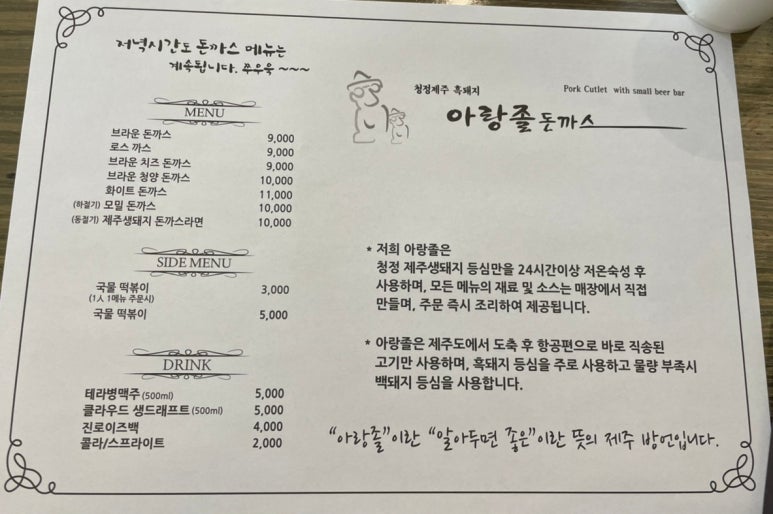 저녁시간도 돈까스 메뉴는
계속됩니다. 쭈우욱 ~~~
MENU
브라운 돈까스 9,000
로스 까스 9,000
브라운 치즈 돈까스 9,000
브라운 청양 돈까스 10,000
화이트 돈까스 11,000
(하절기) 모밀 돈까스 10,000
(동절기) 제주생돼지 돈까스라면 10,000
SIDE MENU
국물 떡볶이 3,000
(1人 1메뉴 주문시)
국물 떡볶이 5,000
DRINK
테라병맥주 (500ml) 5,000
클라우드 생드래프트 (500ml) 5,000
진로이즈백 4,000
콜라/스프라이트 2,000
청정제주 흑돼지
Pork Cutlet with small beer bar
아랑졸 돈까스
* 저희 아랑졸은
청정 제주생돼지 등심만을 24시간이상 저온숙성 후
사용하며, 모든 메뉴의 재료 및 소스는 매장에서 직접
만들며, 주문 즉시 조리하여 제공됩니다.
* 아랑졸은 제주도에서 도축 후 항공편으로 바로 직송된
고기만 사용하며, 흑돼지 등심을 주로 사용하고 물량 부족시
백돼지 등심을 사용합니다.
“아랑졸”이란 “알아두면 좋은”이란 뜻의 제주 방언입니다.